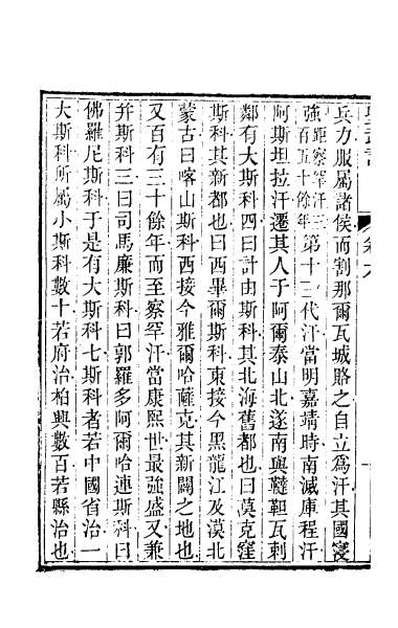 兵力服屬諸侯而割那爾瓦城賂之自立爲汗其國寖
強距察罕汗三百五十餘年第十三代汗當明嘉靖時南滅庫程汗
阿斯坦拉汗遷其人于阿爾泰山北遂南與韃靼瓦剌
鄰有大斯科四曰計由斯科其北海舊都也曰莫克窪
斯科其新都也曰西畢爾斯科東接今黑龍江及漠北
蒙古曰喀山斯科西接今雅爾哈薩克其新闢之地也
又百有三十餘年而至察罕汗當康熙世最強盛又兼
并斯科三曰司馬廉斯科曰郭羅多阿爾哈連斯科曰
佛羅尼斯科于是有大斯科七斯科者若中國省治一
大斯科所屬小斯科數十若府治柏興數百若縣治也